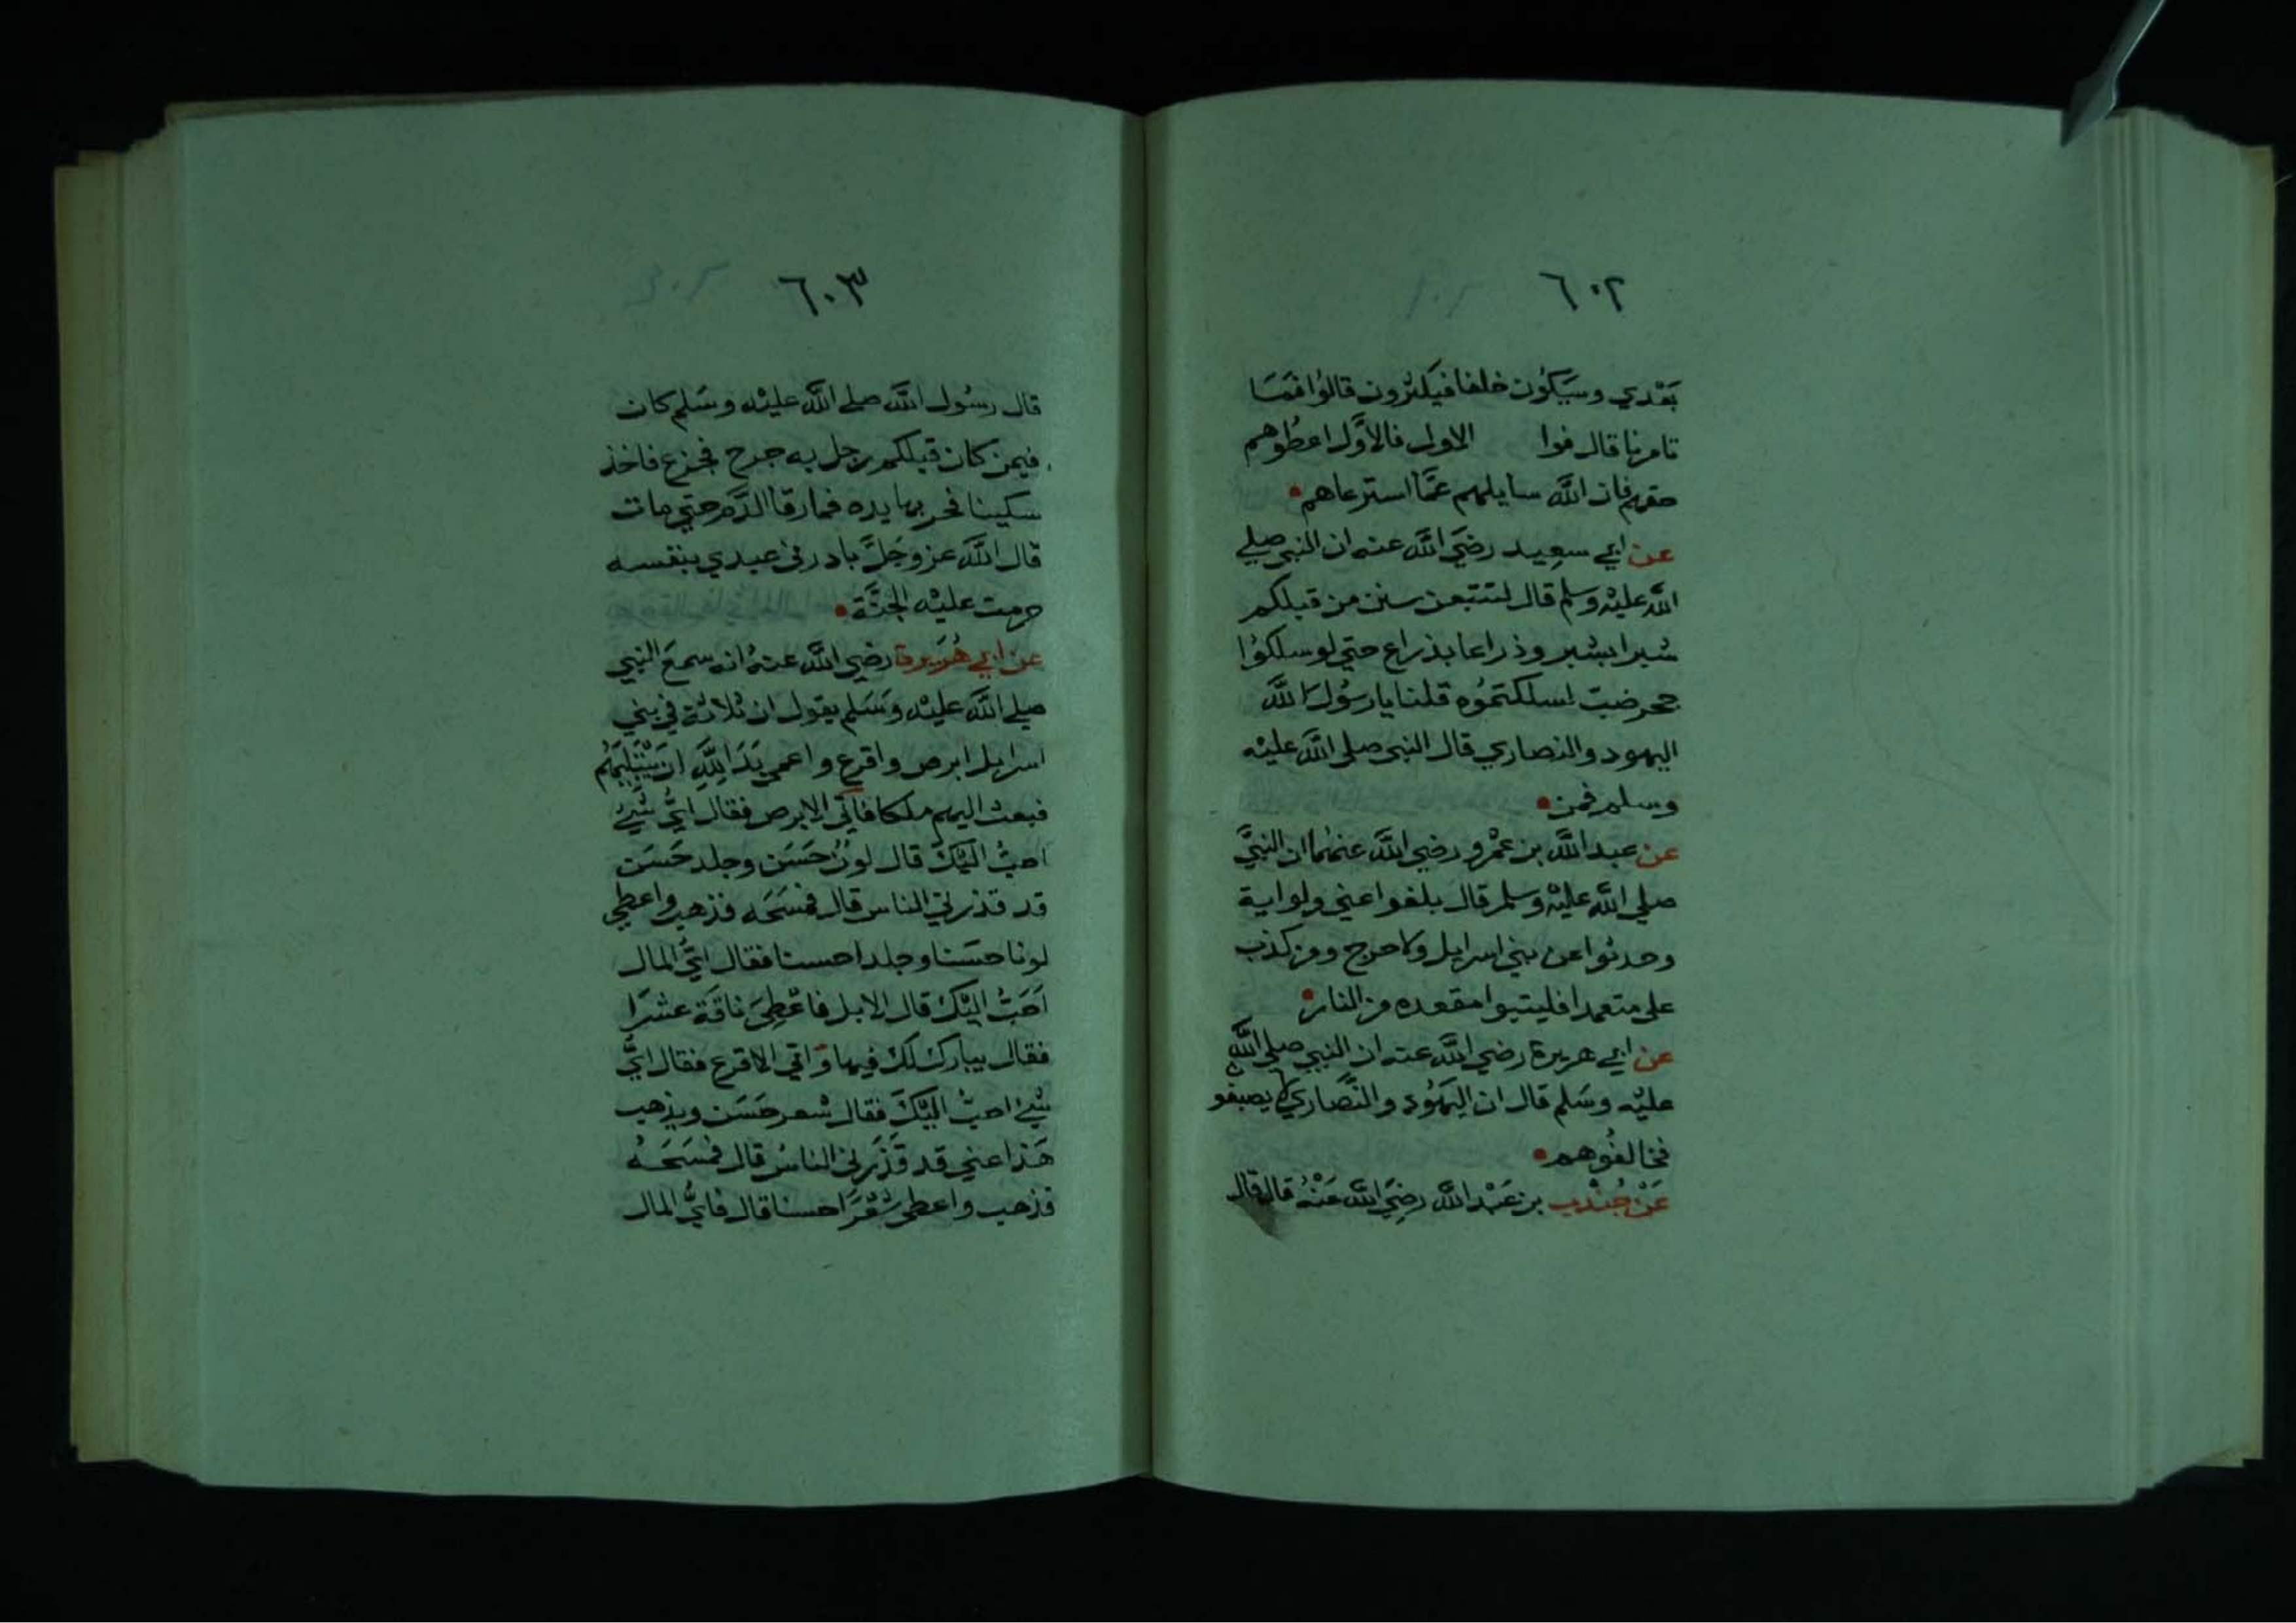 ٦٠٢
بَعْدي وسَيَكُون خلفا فيكثرون قالوُا فَمَا
تامرنا قال فوا الاول فالاوَّل اعطُوهم
حقهم فان اللَّه سايلهم عمَّا استرعاهم
عن ابي سعِيد رضيَ اللَّه عنه ان النبي صلي
اللَّه عليْه وسلم قال لتتبعن سنن من قبلكم
شبرا بشبر وذراعا بذراع حتي لو سلكوُا
جحر ضبّ لسلكتموُه قلنا يا رسوُل اللَّه
اليهود والنصاري قال النبي صلي اللَّه عليْه
وسلم فمن
عن عبد اللَّه بن عمْرو رضي اللَّه عنهُما ان النبيَّ
صلي اللَّه عليْه وسلم قال بلغوا عني ولو اية
وحدثوا عن بني اسرايل ولا حرج ومن كذب
علي متعمدا فليتبوا مقعده من النار
عن ابي هريرة رضي اللَّه عنه ان النبي صلي اللَّه
عليْه وسَلم قال ان اليهَوُد والنَّصَاري لا يصبغو
فخالفُوهم
عَنْ جُنْدب بن عَبْد اللَّه رضيَ اللَّه عَنْهُ قال قال
٦٠٣
قال رسُول اللَّه صلي اللَّه عليْه وسَلم كان
فيمن كان قبلكم رجل به جرح فجزع فاخذ
سكينا فحز بها يده فما رقا الدَّم حتي مات
قال اللَّه عز وجَلَّ بادرني عبدي بنفسه
حرمت عليْه الجنَّة
عن ابي هُرَيرة رضي اللَّه عنهُ انه سمعَ النبي
صلي اللَّه عليْه وَسَلم يقول ان ثلاثة في بني
اسرايل ابرص واقرع واعمي بَدَا لِلَّهِ ان يَبْتَلِيَهُم
فبعث اليهم ملكا فاتي الابرص فقال ايُّ شيْءٍ
احبُّ اليْكَ قال لونٌ حَسَن وجلد حَسَن
قد قذرني الناس قال فمسَحَه فذهب واعطي
لونا حسَنا وجلدا حسنا فقال ايُّ المال
اَحَبُّ اليْكَ قال الابل فاعْطِيَ ناقَة عشَرا
فقال يبارك لك فيها وَاتي الاقرع فقال ايُّ
شيْءٍ احبُّ اليْكَ فقال شعر حَسَن ويذهب
هَذا عني قد قَذَرَني الناسُ قال فمسَحَهُ
فذهب واعطي شَعْرَا حسنا قال فايُّ المال